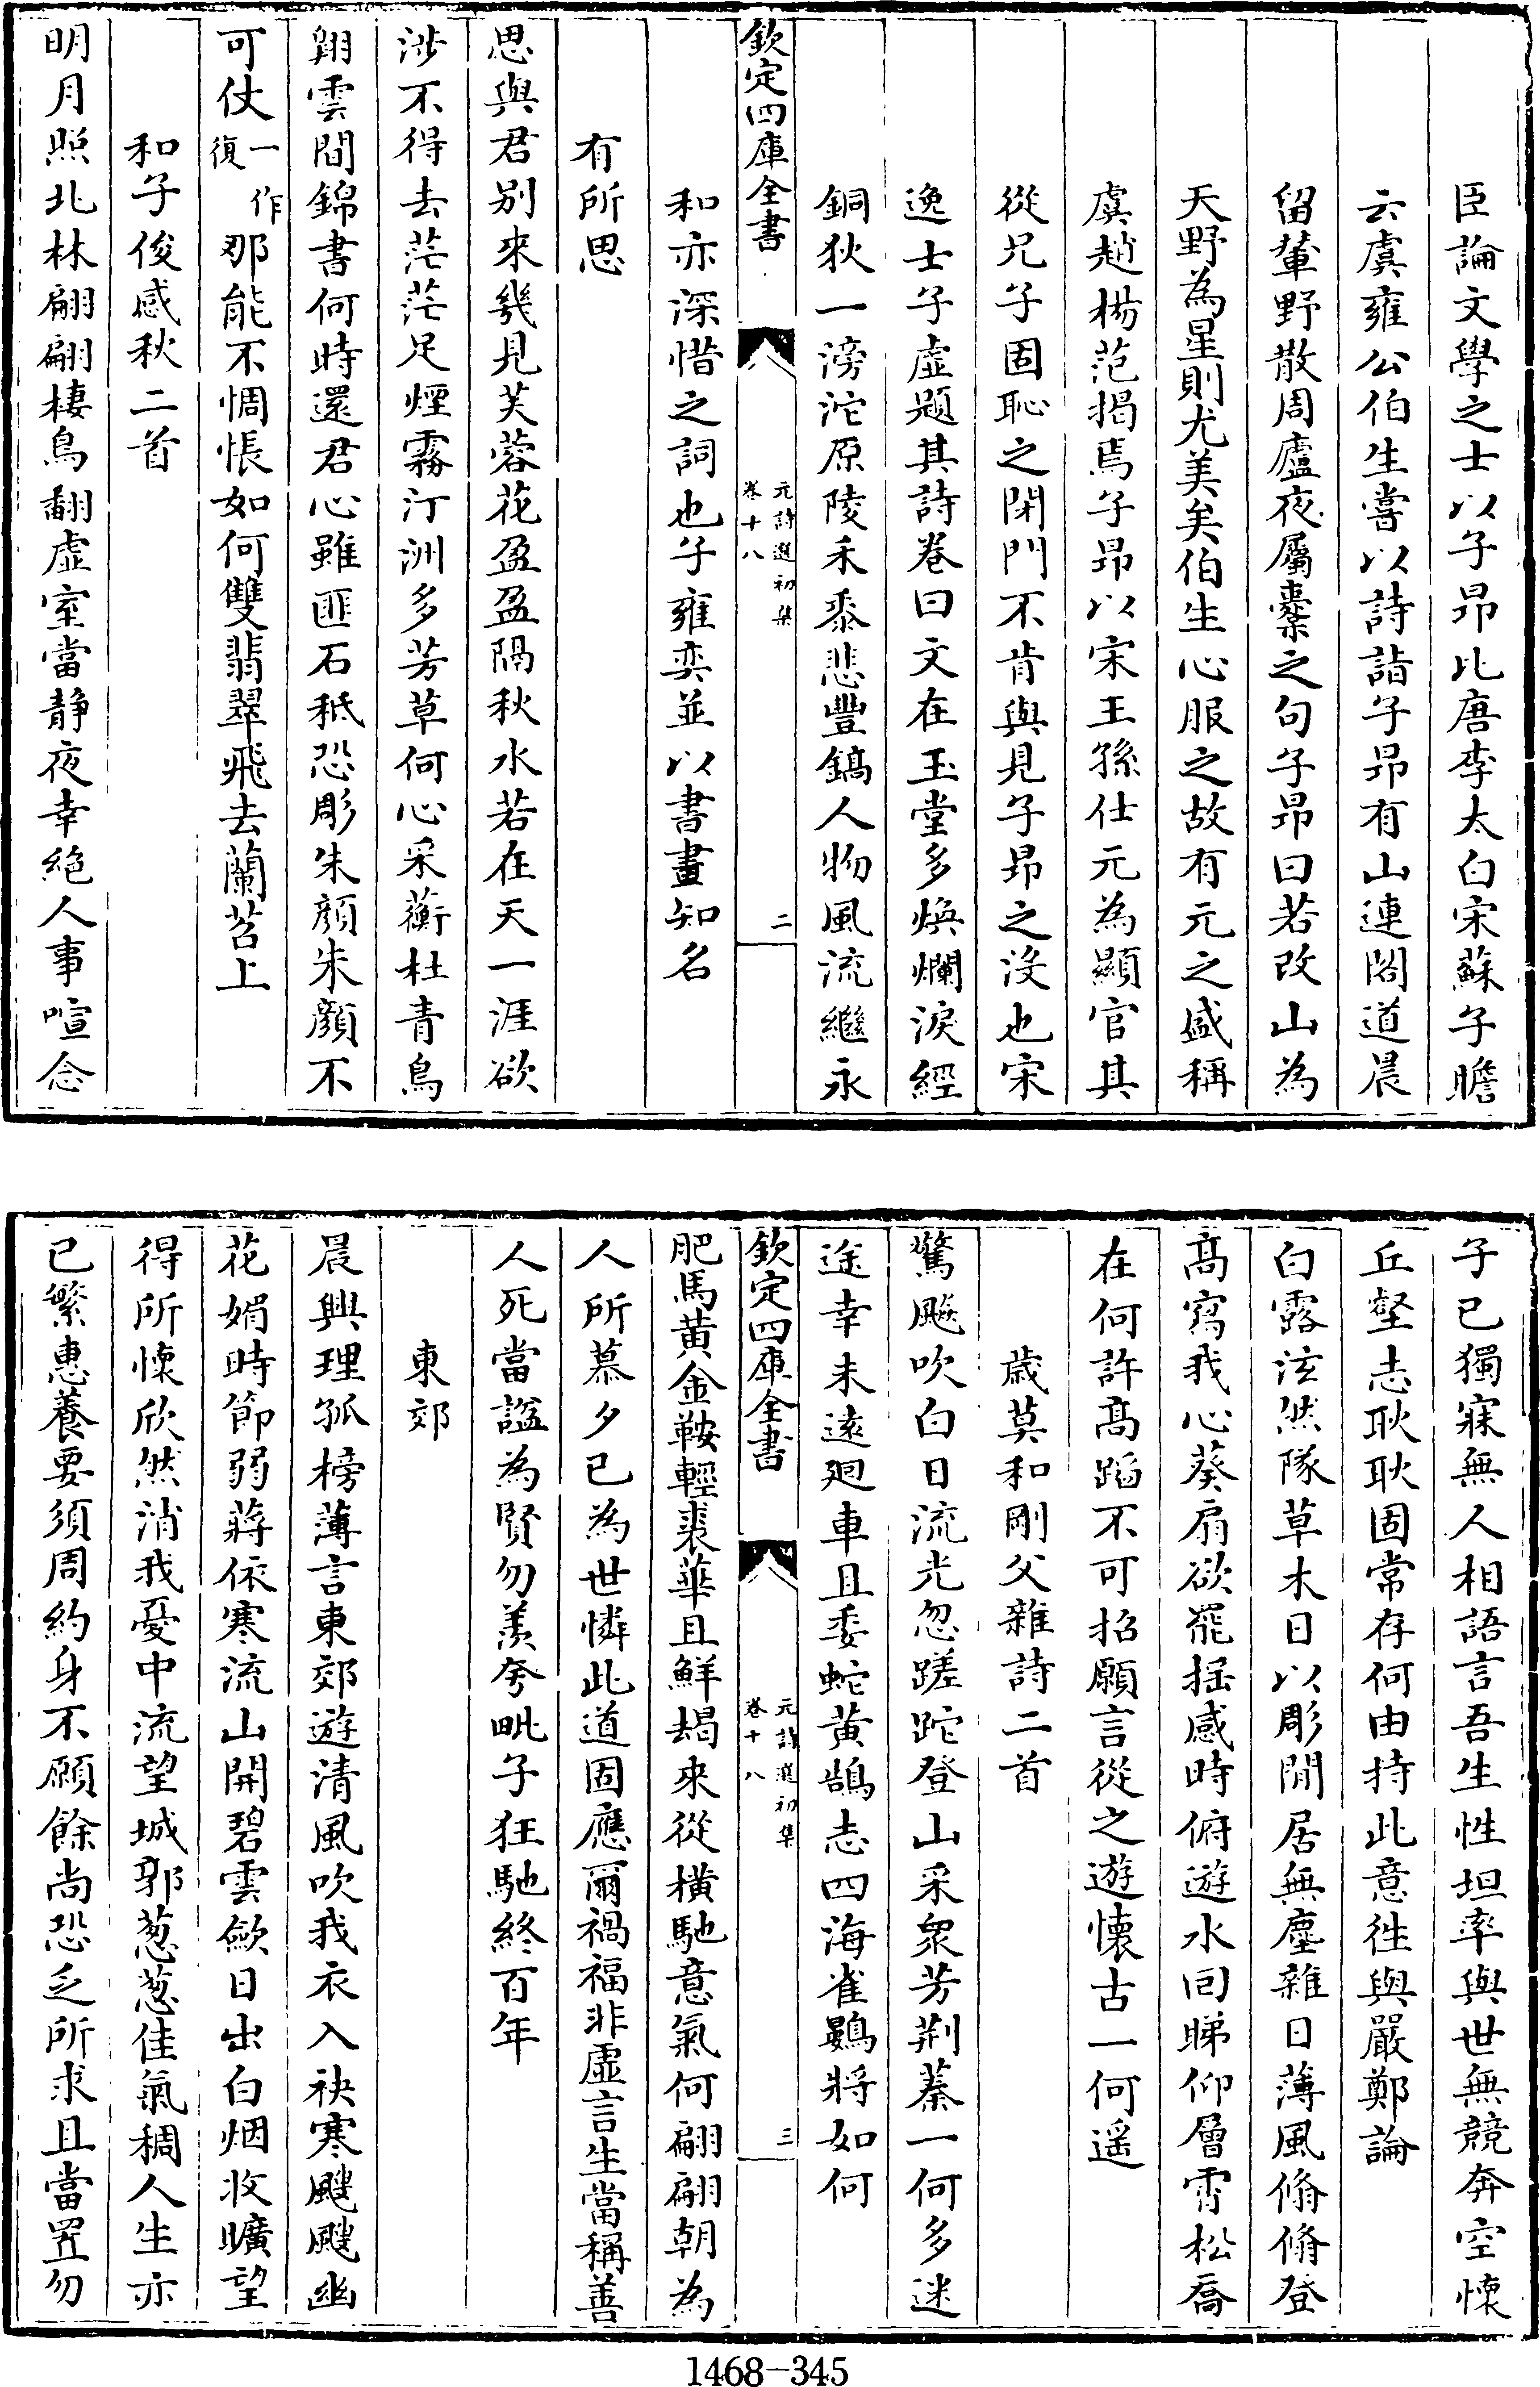 臣論文學之士以子昂比唐李太白宋蘇子瞻
云虞雍公伯生嘗以詩詣子昂有山連閣道晨
留輦野散周廬夜屬櫜之句子昂曰若改山為
天野為星則尤美矣伯生心服之故有元之盛稱
虞趙楊范掲焉子昂以宋王孫仕元為顯官其
從兄子固恥之閉門不肯與見子昂之沒也宋
逸士子虛題其詩卷曰文在玉堂多煥爛淚經
銅狄一滂沱原陵禾黍悲豐鎬人物風流繼永
欽定四庫全書
元詩選初集
卷十八
二
和亦深惜之詞也子雍奕並以書畫知名
有所思
思與君别來幾見芙蓉花盈盈隔秋水若在天一涯欲
涉不得去茫茫足煙霧汀洲多芳草何心采蘅杜青鳥
翔雲間錦書何時還君心雖匪石秪恐彫朱顔朱顔不
可仗一作復那能不惆悵如何雙翡翠飛去蘭苕上
和子俊感秋二首
明月照北林翩翩棲鳥翻虛室當静夜幸絶人事喧念
子已獨寐無人相語言吾生性坦率與世無競奔空懷
丘壑志耿耿固常存何由持此意徃與嚴鄭論
白露泫然隊草木日以彫閒居無塵雜日薄風翛翛登
髙寫我心葵扇欲罷揺感時俯遊水囘睇仰層霄松喬
在何許髙蹈不可招願言從之遊懐古一何遥
歳莫和剛父雜詩二首
驚飈吹白日流光忽蹉跎登山采衆芳荆蓁一何多迷
途幸未遠廻車且委蛇黄鵠志四海雀鷃將如何
欽定四庫全書
元詩選初集
卷十八
三
肥馬黄金鞍輕裘華且鮮朅來從横馳意氣何翩翩朝為
人所慕夕已為世憐此道固應爾禍福非虛言生當稱善
人死當諡為賢勿羨夸毗子狂馳終百年
東郊
晨興理孤榜薄言東郊遊清風吹我衣入袂寒颼颼幽
花娟時節弱蔣依寒流山開碧雲歛日出白烟收曠望
得所懷欣然消我憂中流望城郭葱葱佳氣稠人生亦
已繁惠養要須周約身不願餘尚恐乏所求且當置勿
1468-345